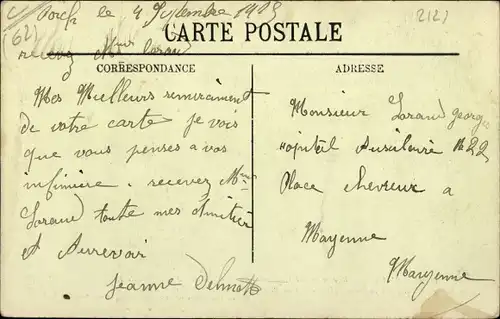 le 4 Septembre 1915
212)
(62)
CARTE POSTALE
recevez
CORRESPONDANCE
ADRESSE
Mes Meilleurs remerciment
de votre carte je vois
que vous penses a vos
infimière. recevez Mme
Loraud toute mes amitier
et Aurevoir
Jeanne
Monsieur Loraud georges
Hopitêl Auxiliaire N 22
Place chevreux a
Mayenne
Mayenne